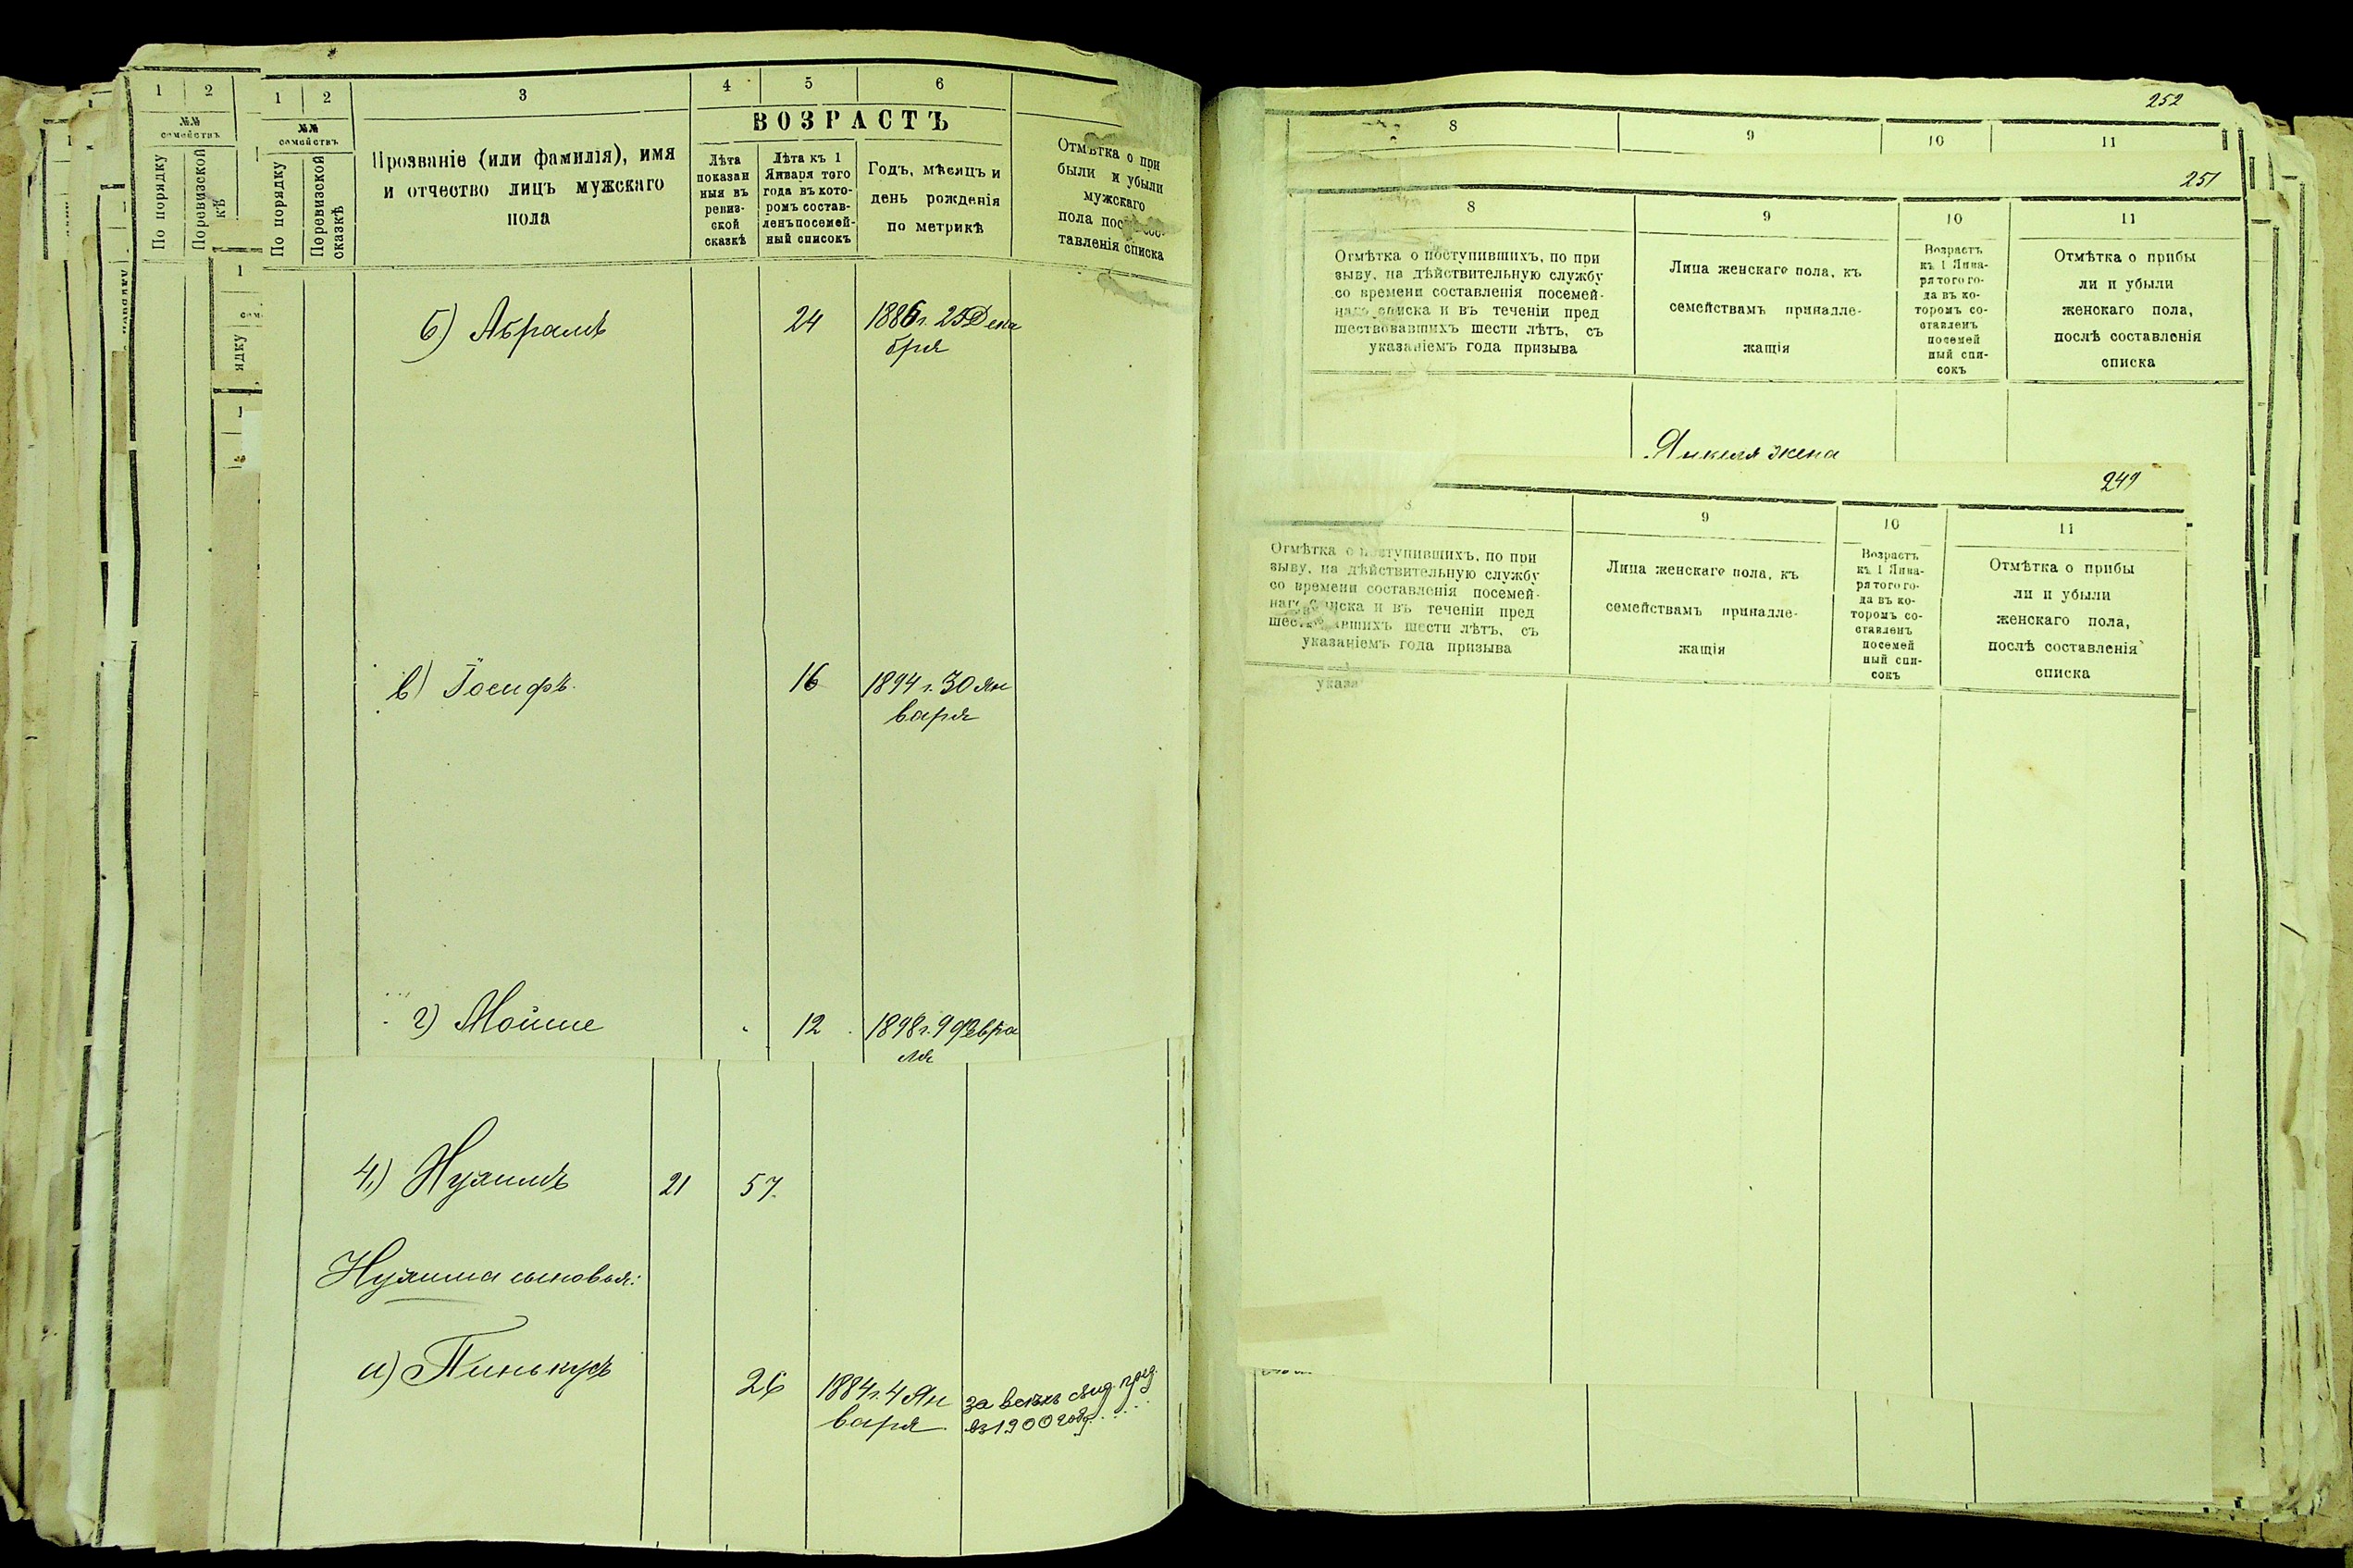 1 2
№№
семействъ
По порядку
Поревизской
1 2 3 4 5 6
№№
семействъ
По порядку
Поревизской сказкѣ
Прозваніе (или фамилія), имя
и отчество лицъ мужскаго
пола
ВОЗРАСТЪ
Лѣта
показан
ныя въ
ревиз-
ской
сказкѣ
Лѣта къ 1
Января того
года въ кото-
ромъ состав-
ленъ посемей-
ный списокъ
Годъ, мѣсяцъ и
день рожденія
по метрикѣ
Отмѣтка о при
были и убыли
мужскаго
пола
тавленія списка
б) Абрамъ 24 1886 г. 25 Дека
бря
в) Іосифъ 16 1894 г. 30 Ян
варя
г) Мойше 12 1898 г. 9 Февра
ля
4) Нухимъ 21 57
Нухима сыновья:
а) Пинькусъ 26 1884 г. 4 Ян
варя
въ 1900 году
252
8 9 10 11
251
8 9 10 11
Отмѣтка о поступившихъ, по при
зыву, на дѣйствительную службу
со времени составленія посемей-
наго списка и въ теченіи пред
шествовавшихъ шести лѣтъ, съ
указаніемъ года призыва
Лица женскаго пола, къ
семействамъ принадле-
жащія
Возрастъ
къ 1 Янва-
ря того го-
да въ ко-
торомъ со-
ставленъ
посемей
ный спи-
сокъ
Отмѣтка о прибы
ли и убыли
женскаго пола,
послѣ составленія
списка
Янкеля жена
249
8 9 10 11
Отмѣтка о поступившихъ, по при
зыву, на дѣйствительную службу
со времени составленія посемей-
наго списка и въ теченіи пред
шествовавшихъ шести лѣтъ, съ
указаніемъ года призыва
Лица женскаго пола, къ
семействамъ принадле-
жащія
Возрастъ
къ 1 Янва-
ря того го-
да въ ко-
торомъ со-
ставленъ
посемей
ный спи-
сокъ
Отмѣтка о прибы
ли и убыли
женскаго пола,
послѣ составленія
списка
указа